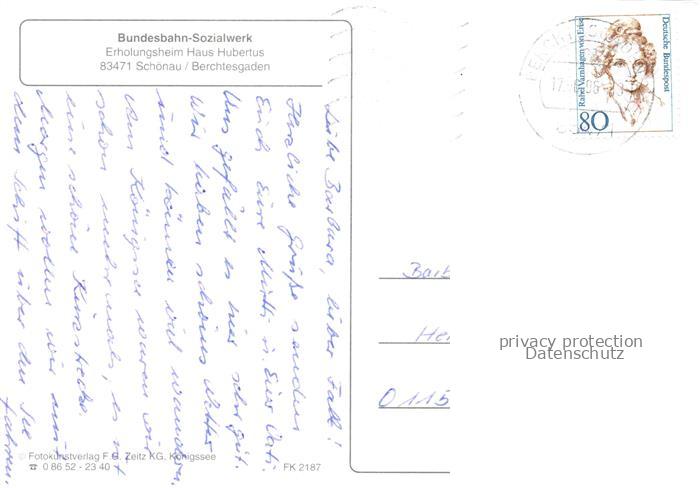 Bundesbahn-Sozialwerk
Erholungsheim Haus Hubertus
83471 Schönau / Berchtesgaden
Liebe Barbara, lieber Falk!
Herzliche Grüße senden
Euch Eure Mutti u. Euer Vati.
Uns gefällt es hier sehr gut.
Wir haben schönes Wetter
und können viel wandern.
Am Königsee waren wir
schon mehrmals, es ist
eine schöne
Morgen wollen wir mit
dem Schiff über den See
fahren.
© Fotokunstverlag F.G. Zeitz KG, Königssee
☎ 0 86 52 - 23 40
FK 2187
Deutsche Bundespost
Rahel Varnhagen von Ense
80
Barb
He
0115
privacy protection
Datenschutz